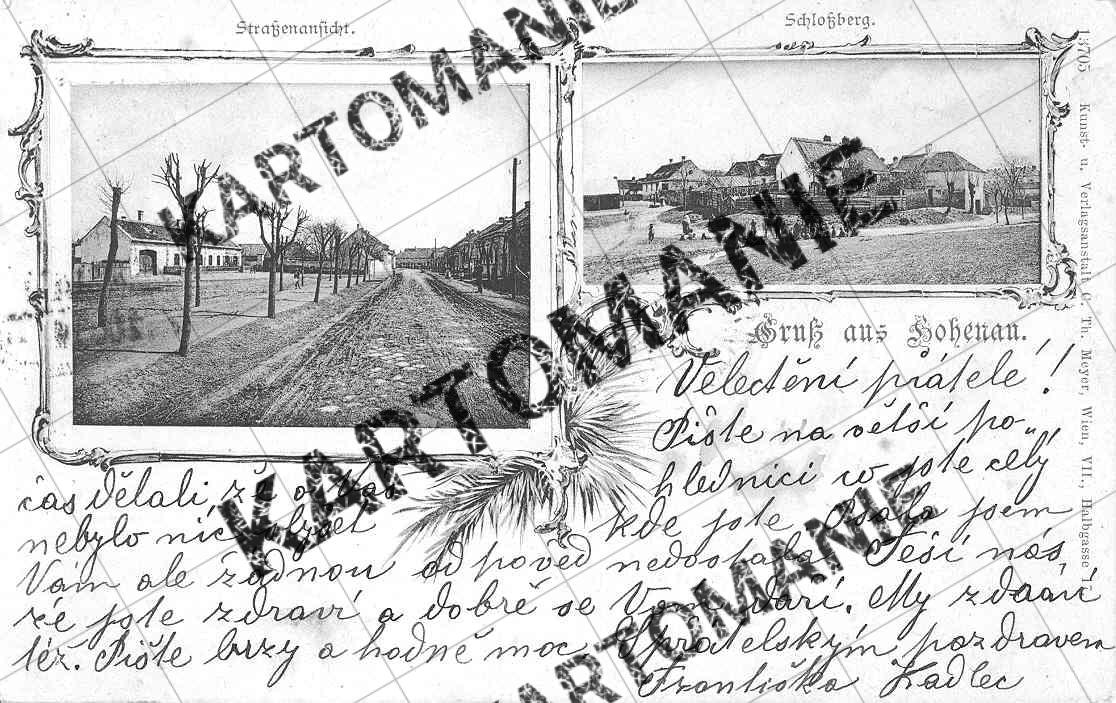 Straßenansicht.
Schloßberg.
13705 Kunst- u. Verlagsanstalt Th. Meyer, Wien, VII., Halbgasse 17.
Gruß aus Hohenau.
Velectění přátele!
Pište na větší po-
hlednici co jste celý
čas dělali, že o Vás
kde jste Psala jsem
nebylo nic slyšet
Vám ale žádnou odpověď nedostala Těší nás,
že jste zdraví a dobře se Vám daří. My zdrávi
též. Pište brzy a hodně moc. S přátelským pozdravem
Františka Kadlec
KARTOMANIE
KARTOMANIE
KARTOMANIE
KARTOMANIE
KARTOMANIE